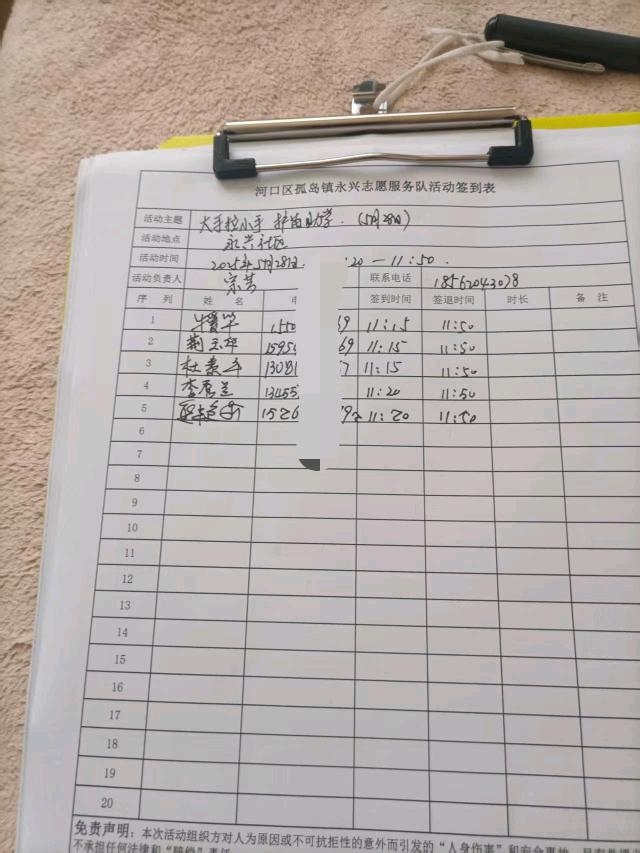 河口区孤岛镇永兴志愿服务队活动签到表
活动主题 大手拉小手 护苗助学 (5月28日)
活动地点 永兴社区
活动时间 2025年5月28日 :20—11:50.
活动负责人 宗芳 联系电话 18562043078
序 列 姓 名 电 签到时间 签退时间 时长 备 注
1 1550 69 11:15 11:50
2 1595 69 11:15 11:50
3 杜 1308 7 11:15 11:50
4 李 13455 11:20 11:50
5 1526 92 11:20 11:50
6
7
8
9
10
11
12
13
14
15
16
17
18
19
20
免责声明：本次活动组织方对人为原因或不可抗拒性的意外而引发的“人身伤害”和安全事故
不承担任何法律和“赔偿”责任